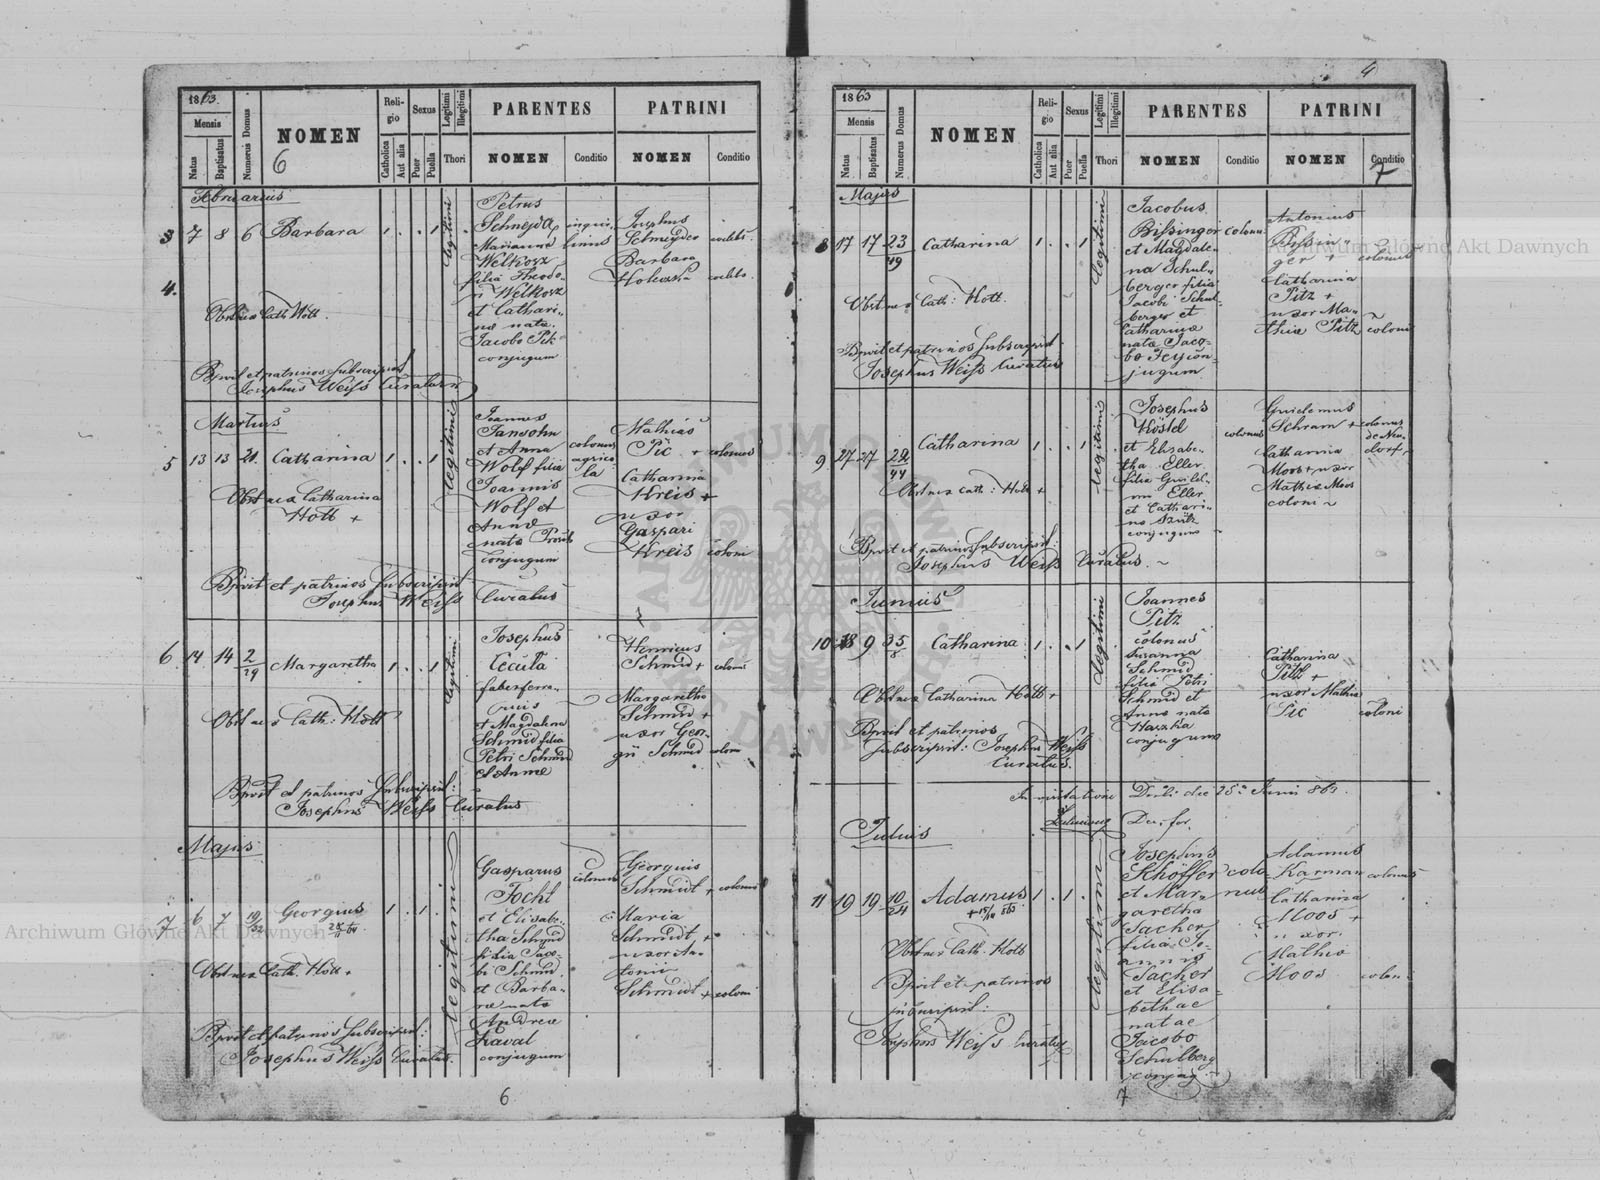 1863.
Mensis
Natus
Baptisatus
Numerus Domus
NOMEN
6
Religio
Catholica
Aut alia
Sexus
Puer
Puella
Legitimi
Illegitimi
Thori
PARENTES
NOMEN
Conditio
PATRINI
NOMEN
Conditio
Februarius
3
7 8 6 Barbara 1 . . 1
legitimi
Petrus
Schneyda
Marianna
Welkosz
filia Theodo-
ri Welkosz
et Cathari-
næ nata
Jacobo Pik
conjugum
inqui-
linus
Josephus
Schneyder
Barbara
4.
Obstnex Cath Hott.
Bptvit et patrinos subscripsit
Josephus Weiss Curatus
Martius
5 13 13 21. Catharina 1 . . 1
legitimi
Joannes
Jansohn
et Anna
Wolf filia
Joannis
Wolf et
Annæ
nata
conjugum
colonus
agrico-
la
Mathias
Pic + colonus
Catharina
Kreis +
uxor
Gaspari
Kreis coloni
Obstnex Catharina
Hott +
Bptvit et patrinos subscripsit
Josephus Weiss Curatus
6. 14 14 2/29 Margaretha 1 . . 1
legitimi
Josephus
Cecuła
faberferra-
rius
et Magdalena
Schmid filia
Petri Schmid
et Annæ
Henricus
Schmid + colonus
Margaretha
Schmid +
uxor Geor-
gii Schmid coloni
Obstnex Cath: Hott
Bptvit et patrinos subscripsit:
Josephus Weiss Curatus
Majus
7 6 7 19/32 Georgius 1 . 1 .
legitimi
Gasparus
Jochl
et Elisabe-
tha Schmid
filia Jaco-
bi Schmid
et Barba-
ræ nata
Andreæ
Kaval
conjugum
colonus
Georgius
Schmidt + colonus
Maria
Schmidt +
uxor An-
tonii
Schmidt + coloni
Obstnex Cath. Hott +
Bptvit et patrinos subscripsit:
Josephus Weiss Curatus.
6
4
1863
Mensis
Natus
Baptisatus
Numerus Domus
NOMEN
Religio
Catholica
Aut alia
Sexus
Puer
Puella
Legitimi
Illegitimi
Thori
PARENTES
NOMEN
Conditio
PATRINI
NOMEN
Conditio
7
Majus
8 17 17 23/49 Catharina 1 . . 1
legitimi
Jacobus
Bissinger colonus
et Magdale-
na Schul-
berger filia
Jacobi Schul-
berger et
Catharinæ
nata Jaco-
bo
jugum
Antonius
Bissin-
ger + colonus
Catharina
Pitz +
uxor Ma-
thiæ Pitz coloni
Obstnex Cath: Hott.
Bptvit et patrinos subscripsit
Josephus Weiss Curatus
9 27 27 22/44 Catharina 1 . . 1
legitimi
Josephus
Kösld colonus
et Elisabe-
tha Eller
filia Guilel-
mi Eller
et Cathari-
næ
conjugum
Schram + colonus
de Neu-
dorf
Catharina
Moos + uxor
Mathiæ Moos
coloni
Obstnex Cath: Hott +
Bptvit et patrinos subscripsit:
Josephus Weiss Curatus.
Junius
10 9 35/8 Catharina 1 . . 1
legitimi
Joannes
Pitz
colonus
Susanna
Schmid
filia Petri
Schmid et
Anna nata
conjugum
Catharina
Pitz +
uxor Mathiæ
Pic coloni
Obstnex Catharina Hott +
Bptvit et patrinos
subscripsit: Josephus Weiss
Curatus.
In visitatione die 25 Junii 863.
Dec. for.
Julius
11 19 19 10/24 Adamus 1 . 1 .
legitimi
Josephus
Schöffer colo-
et Mar- nus
garetha
Jacher
filia Jo-
annis
Jacher
et Elisa-
bethae
natae
Jacobo
Schulberg
conjug.
Adamus
Karman colonus
Catharina
Moos +
uxor
Mathiæ
Moos coloni
Obstnex Cath. Hott
Bptvit et patrinos
subscripsit:
Josephus Weiss Curatus
7
Archiwum Główne Akt Dawnych
Archiwum Główne Akt Dawnych
ARCHIWUM GŁÓWNE AKT DAWNYCH